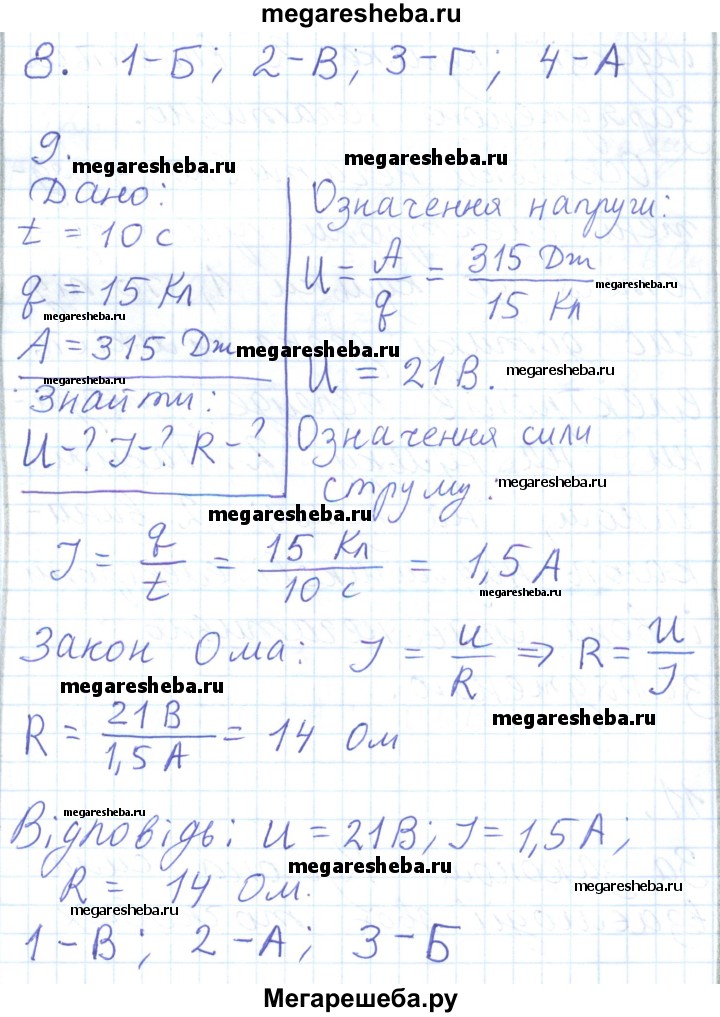 megaresheba.ru
8. 1-Б; 2-В; 3-Г; 4-А
9.
megaresheba.ru
megaresheba.ru
Дано:
t = 10 с
q = 15 Кл
megaresheba.ru
A = 315 Дж
megaresheba.ru
megaresheba.ru
Знайти:
U-? I-? R-?
Означення напруги:
U = A/q = 315 Дж/15 Кл
megaresheba.ru
U = 21 В.
megaresheba.ru
Означення сили
струму:
megaresheba.ru
megaresheba.ru
I = q/t = 15 Кл/10 с = 1,5 А
megaresheba.ru
Закон Ома: I = U/R ⇒ R = U/I
megaresheba.ru
megaresheba.ru
R = 21 В/1,5 А = 14 Ом
megaresheba.ru
Відповідь: U = 21 В; I = 1,5 А;
megaresheba.ru
R = 14 Ом.
megaresheba.ru
megaresheba.ru
1-В; 2-А; 3-Б
Мегарешеба.ру